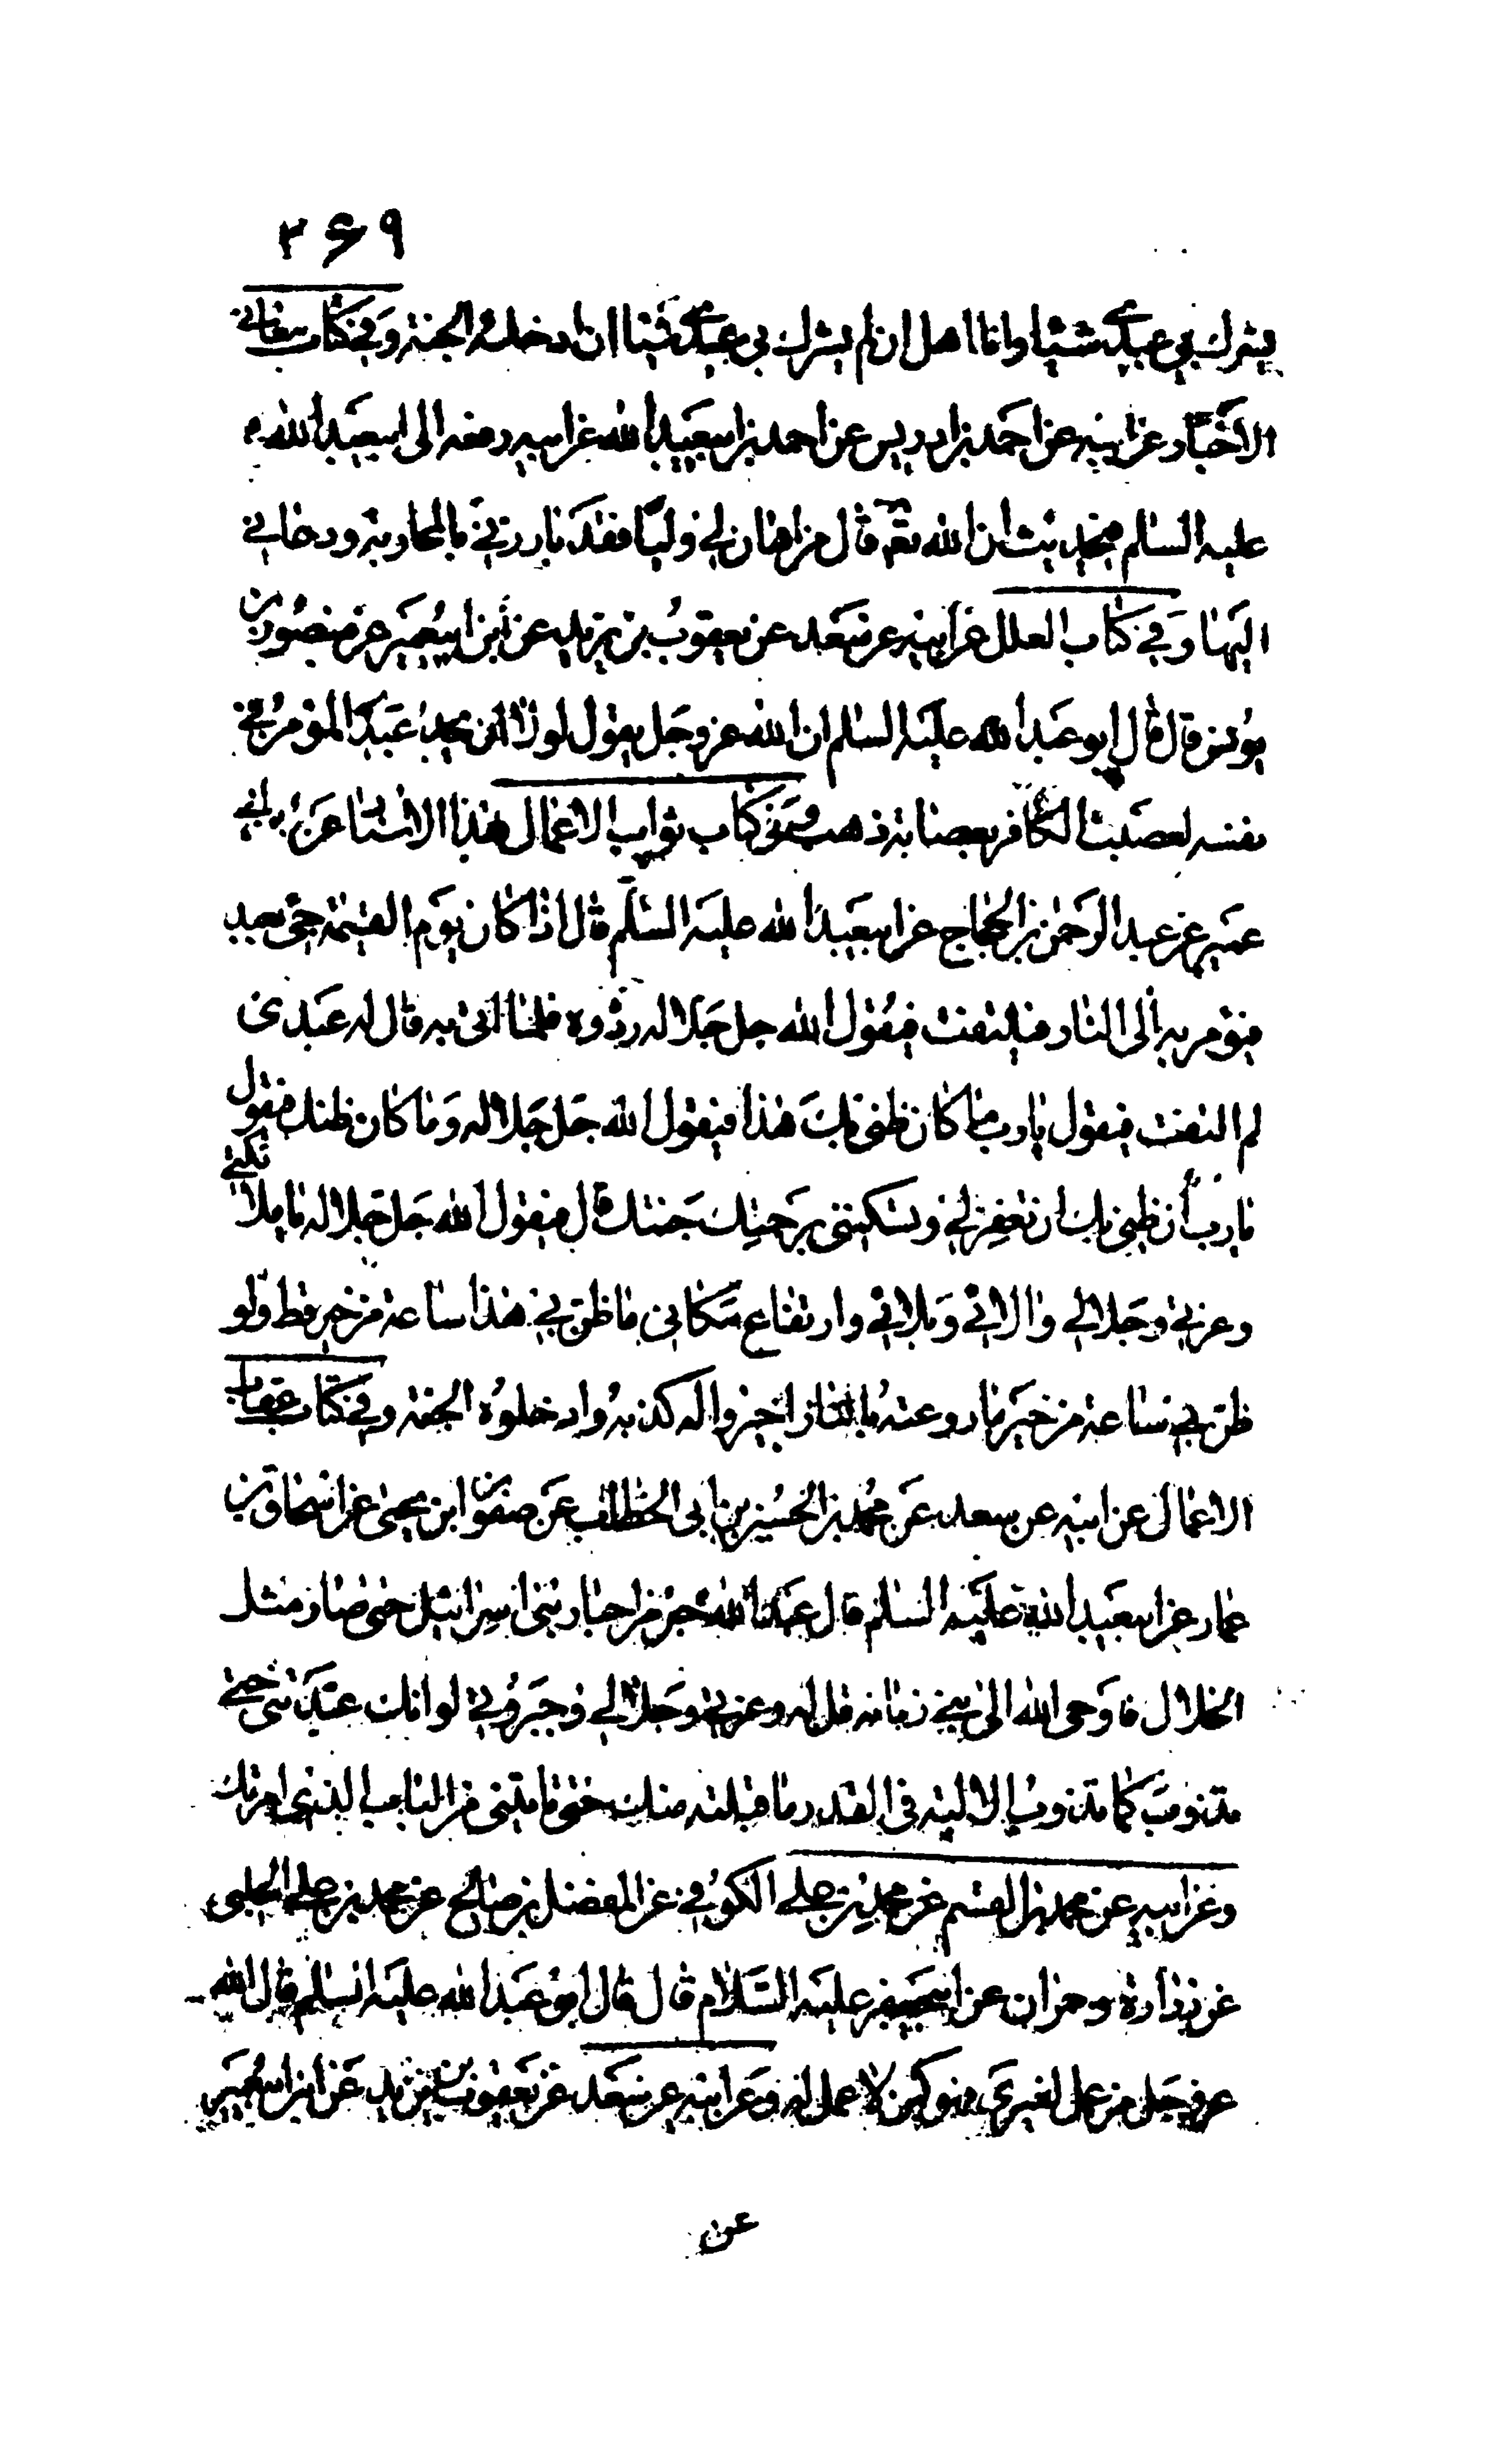 ۳۶۹
يشرك بي عبدي شيئا وانا اهل ان لم يشرك بي عبدي شيئا ان ادخله الجنة وفي كتاب معاني
الاخبار عن ابيه عن احمد بن ادريس عن احمد بن ابيعبدالله عن ابيه رفعه الى ابيعبدالله
عليه السلم في حديث ان الله تعالى قال من اهان لي وليا فقد بارزني بالمحاربة ودعاني
اليها وفي كتاب العلل عن ابيه عن سعد عن يعقوب بن يزيد عن ابن ابيعمير عن منصور بن
يونس قال قال ابو عبدالله عليه السلم ان الله عز وجل يقول لولا ان يجد عبدي المؤمن في
نفسه لعصبت الكافر بعصابة ذهب وفي كتاب ثواب الاعمال بهذا الاسناد عن ابن ابي
عمير عن عبد الرحمن بن الحجاج عن ابيعبدالله عليه السلم قال اذا كان يوم القيمة جئ بعبد
فيؤمر به الى النار فيلتفت فيقول الله جل جلاله ردوه فلما اتى به قال له عبدى
لم التفت فيقول يا رب ما كان ظني بك هذا فيقول الله جل جلاله وما كان ظنك فيقول
يا رب ان ظني بك ان تغفر لي وتسكنني برحمتك جنتك قال فيقول الله جل جلاله يا ملائكتي
وعزتي وجلالي والائي وبلائي وارتفاع مكاني ما ظن بي هذا ساعة من خير قط ولو
ظن بي ساعة من خير ما روعته بالنار اجيزوا له كذبه وادخلوه الجنة وفي كتاب عقاب
الاعمال عن ابيه عن سعد عن محمد بن الحسين بن ابي الخطاب عن صفوان بن يحيى عن اسحاق بن
عمار عن ابيعبدالله عليه السلم قال عبد الله حبر من احبار بني اسرائيل حتى صار مثل
الخلال فاوحى الله الى نبي زمانه قل له وعزتي وجلالي وجبروتي لو انك عبدتني حتى
تذوب كما تذوب الالية في القدر ما قبلته منك حتى تاتيني من الباب الذي امرتك
وعن ابيه عن محمد بن القسم عن محمد بن علي الكوفي عن المفضل بن صالح عن محمد بن علي الحلبي
عن زرارة وحمران عن ابيجعفر عليه السلام قال قال ابو عبدالله عليه السلم قال الله
عز وجل من عمل لغيري فهو كمن لا عمل له وعن ابيه عن سعد عن يعقوب بن يزيد عن ابن ابيعمير
عن